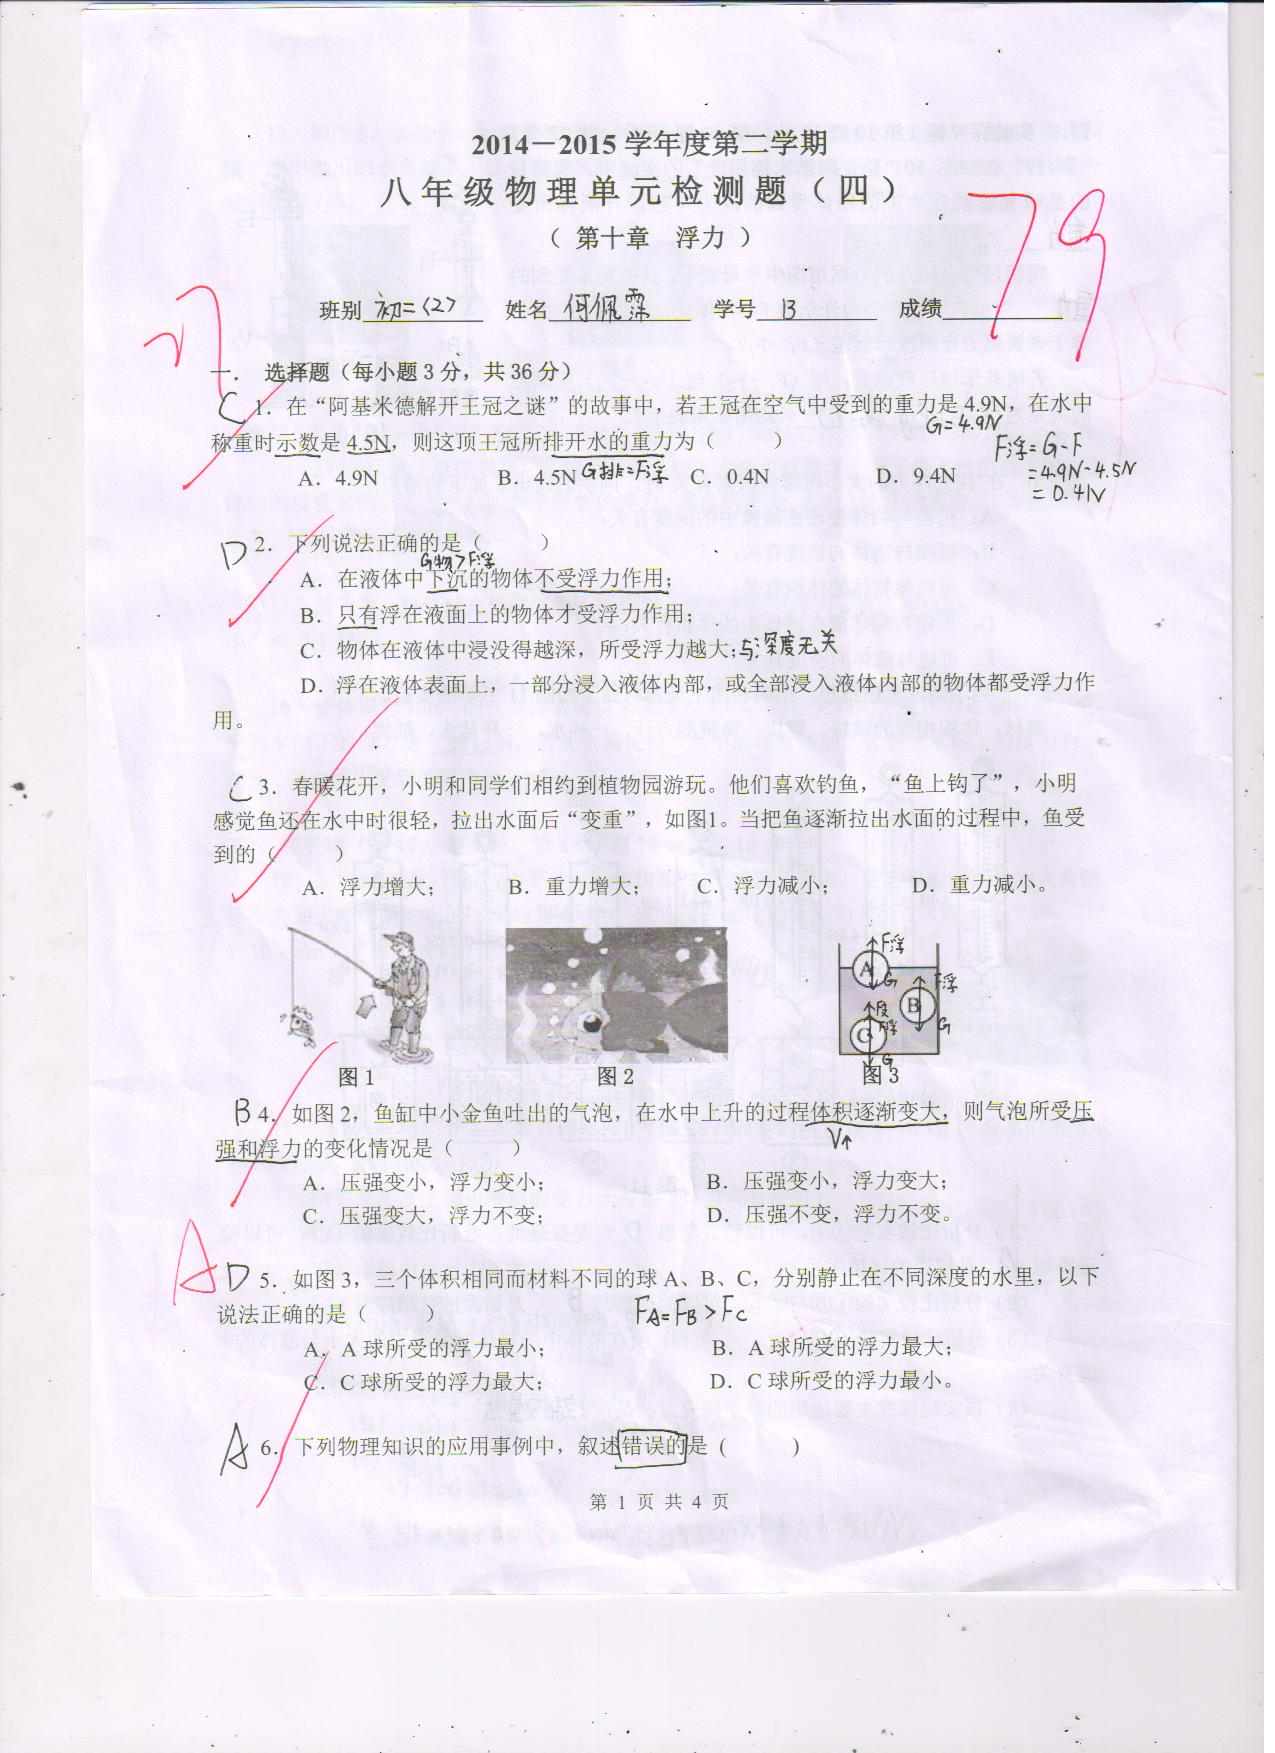 2014－2015 学年度第二学期
八年级物理单元检测题（四）
（ 第十章 浮力 ）
79
班别 初二<2> 姓名 何佩霖 学号 13 成绩
27
一． 选择题（每小题 3 分，共 36 分）
C 1．在“阿基米德解开王冠之谜”的故事中，若王冠在空气中受到的重力是 4.9N，在水中
G=4.9N
称重时示数是 4.5N，则这顶王冠所排开水的重力为（ ）
F浮=G-F
=4.9N-4.5N
=0.4N
A．4.9N B．4.5N G排=F浮 C．0.4N D．9.4N
D 2．下列说法正确的是（ ）
G物>F浮
A．在液体中下沉的物体不受浮力作用；
B．只有浮在液面上的物体才受浮力作用；
C．物体在液体中浸没得越深，所受浮力越大；与深度无关
D．浮在液体表面上，一部分浸入液体内部，或全部浸入液体内部的物体都受浮力作
用。
C 3．春暖花开，小明和同学们相约到植物园游玩。他们喜欢钓鱼，“鱼上钩了”，小明
感觉鱼还在水中时很轻，拉出水面后“变重”，如图1。当把鱼逐渐拉出水面的过程中，鱼受
到的（ ）
A．浮力增大； B．重力增大； C．浮力减小； D．重力减小。
F浮
A G F浮
B
F支 F浮 G
C
G
图 1 图 2 图 3
B 4．如图 2，鱼缸中小金鱼吐出的气泡，在水中上升的过程体积逐渐变大，则气泡所受压
V↑
强和浮力的变化情况是（ ）
A．压强变小，浮力变小； B．压强变小，浮力变大；
C．压强变大，浮力不变； D．压强不变，浮力不变。
A D 5．如图 3，三个体积相同而材料不同的球 A、B、C，分别静止在不同深度的水里，以下
说法正确的是（ ） FA=FB>FC
A．A 球所受的浮力最小； B．A 球所受的浮力最大；
C．C 球所受的浮力最大； D．C 球所受的浮力最小。
A 6．下列物理知识的应用事例中，叙述错误的是（ ）
第 1 页 共 4 页